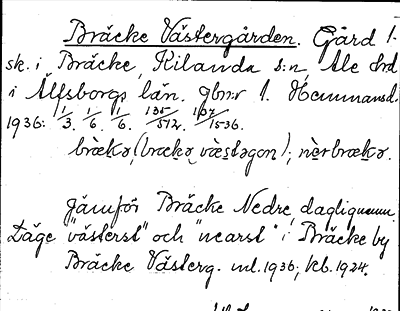 Bräcke Västergården. Gård 1.
sk. i Bräcke, Kilanda s:n, Ale hrd
i Älfsborgs län. gbnr 1. Hemmansd.
1936: 1/3. 1/6. 1/6. 135/512. 107/1536.
brækə, (brækə væstəgon);
jämför Bräcke Nedre, daglignamn.
Läge "västerst" och "nearst" i Bräcke by
Bräcke Västerg. ml. 1936; kb. 1924.